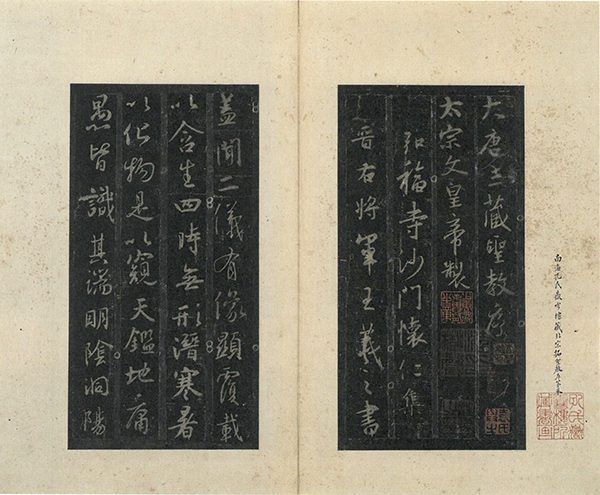 大唐三藏聖教序
太宗文皇帝製
弘福寺沙門懷仁集
晉右將軍王羲之書
蓋聞二儀有像顯覆載
以含生四時無形潛寒暑
以化物是以窺天鑑地庸
愚皆識其端明陰洞陽